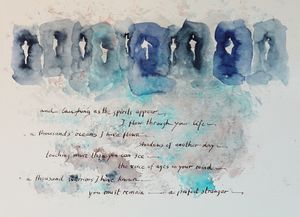 and laughing as the spirits appear
I flow through your life
a thousands oceans I have flown
shadows of another day
touching more than you can see
the voice of ages in your mind
a thousand warriors I have known
you must remain a perfect stranger